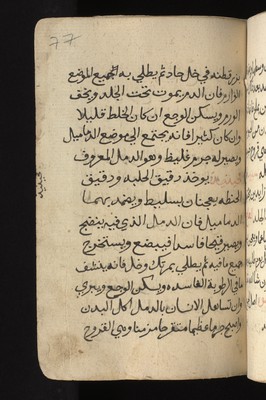 77
بزر قطنه في خل حاد ثم يطلي به الجميع الموضع
الوارم فان الدم يموت تحت الجلد ويخف
الورم ويسكن الوجع ان كان الخلط قليلا
وان كان كثيرا فانه يجتمع الي موضع الدماميل
ويصير له جرم غليظ وهو الدمل المعروف
يوخذ دقيق الحلبه ودقيق
الحنطه يعجنان بسليط ويضمد بهما
الدماميل فان الدمل الذي فيه ينضج
ويصير قيحا فاسدا فيبضع ويستخرج
جميع ما فيه ثم يطلي بمرتك وخل فانه ينشف
ما في الرطوبه الفاسده ويسكن الوجع ويبري
وان تساهل الانسان بالدمل اكل البدن
واصبح جرحا عظيما متقرحا مزمنا وهي القروح